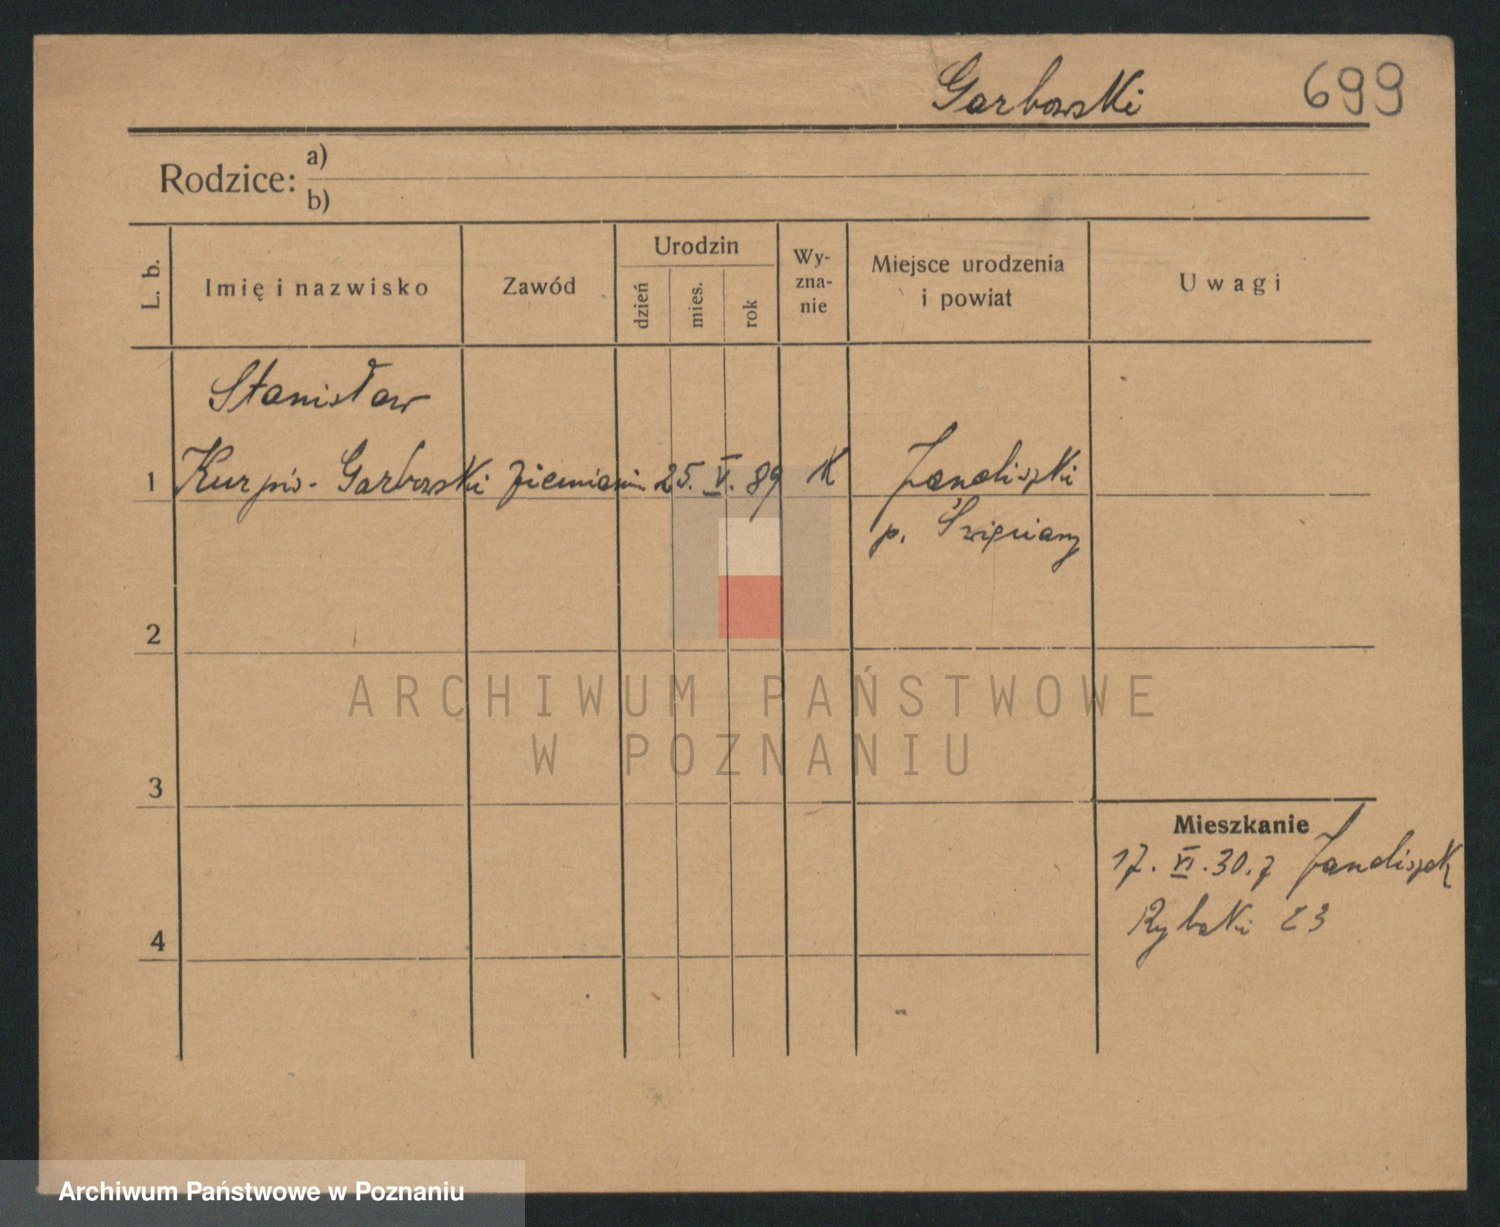 Garbowski 699
Rodzice: a)
b)
L. b. Imię i nazwisko Zawód Urodzin dzień mies. rok Wy-zna-nie Miejsce urodzenia i powiat Uwagi
Stanisław
1 Kurpis-Garbowski ziemianin 25. V. 89 K Janoliszki
p. Święciany
2
ARCHIWUM PAŃSTWOWE
W POZNANIU
3
Mieszkanie
17. VI. 30. z
4 Rybaki 23
Archiwum Państwowe w Poznaniu